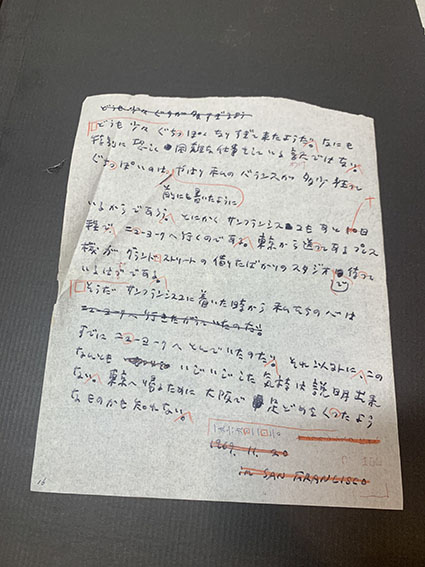 どうも少々ぐちが多すぎるよう
どうも少々ぐちっぽくなりすぎて来たようだ。なにも
特別に恐しく困難な仕事をしている訳ではない。
ぐちっぽいのは、やはり私のバランスが多少狂って
前にも書いたように
いるからであろう。とにかくサンフランシスコもあと10日
程で、ニューヨークへ行くのである。東京から送ってあるプレス
機がグランドストリートの借りたばかりのスタジオで待って
いるはずである。
そうだサンフランシスコに着いた時から私たちの心は
ニューヨークへ行きたがっていたのだ。
すでにニューヨークへとんでいたのだ。それ以上に、この
なんともいじいじした気持は説明出来
ない。東京へ帰るために大阪で足どめをくったよう
なものかも知れない。
1969. 11. 20
in SAN FRANCISCO
16